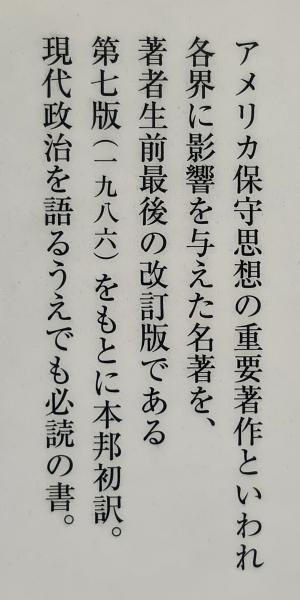 アメリカ保守思想の重要著作といわれ
各界に影響を与えた名著を、
著者生前最後の改訂版である
第七版（一九八六）をもとに本邦初訳。
現代政治を語るうえでも必読の書。